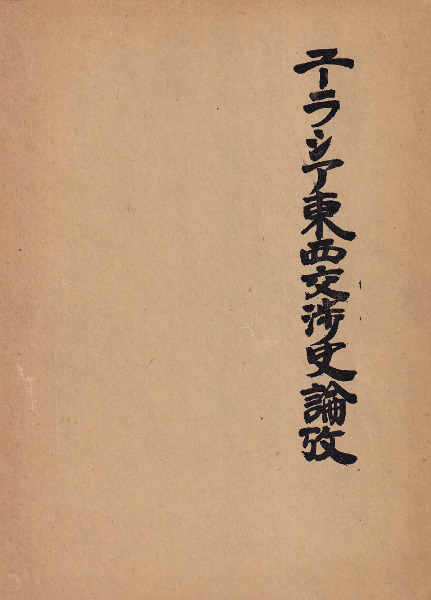 ユーラシア東西交渉史論攷